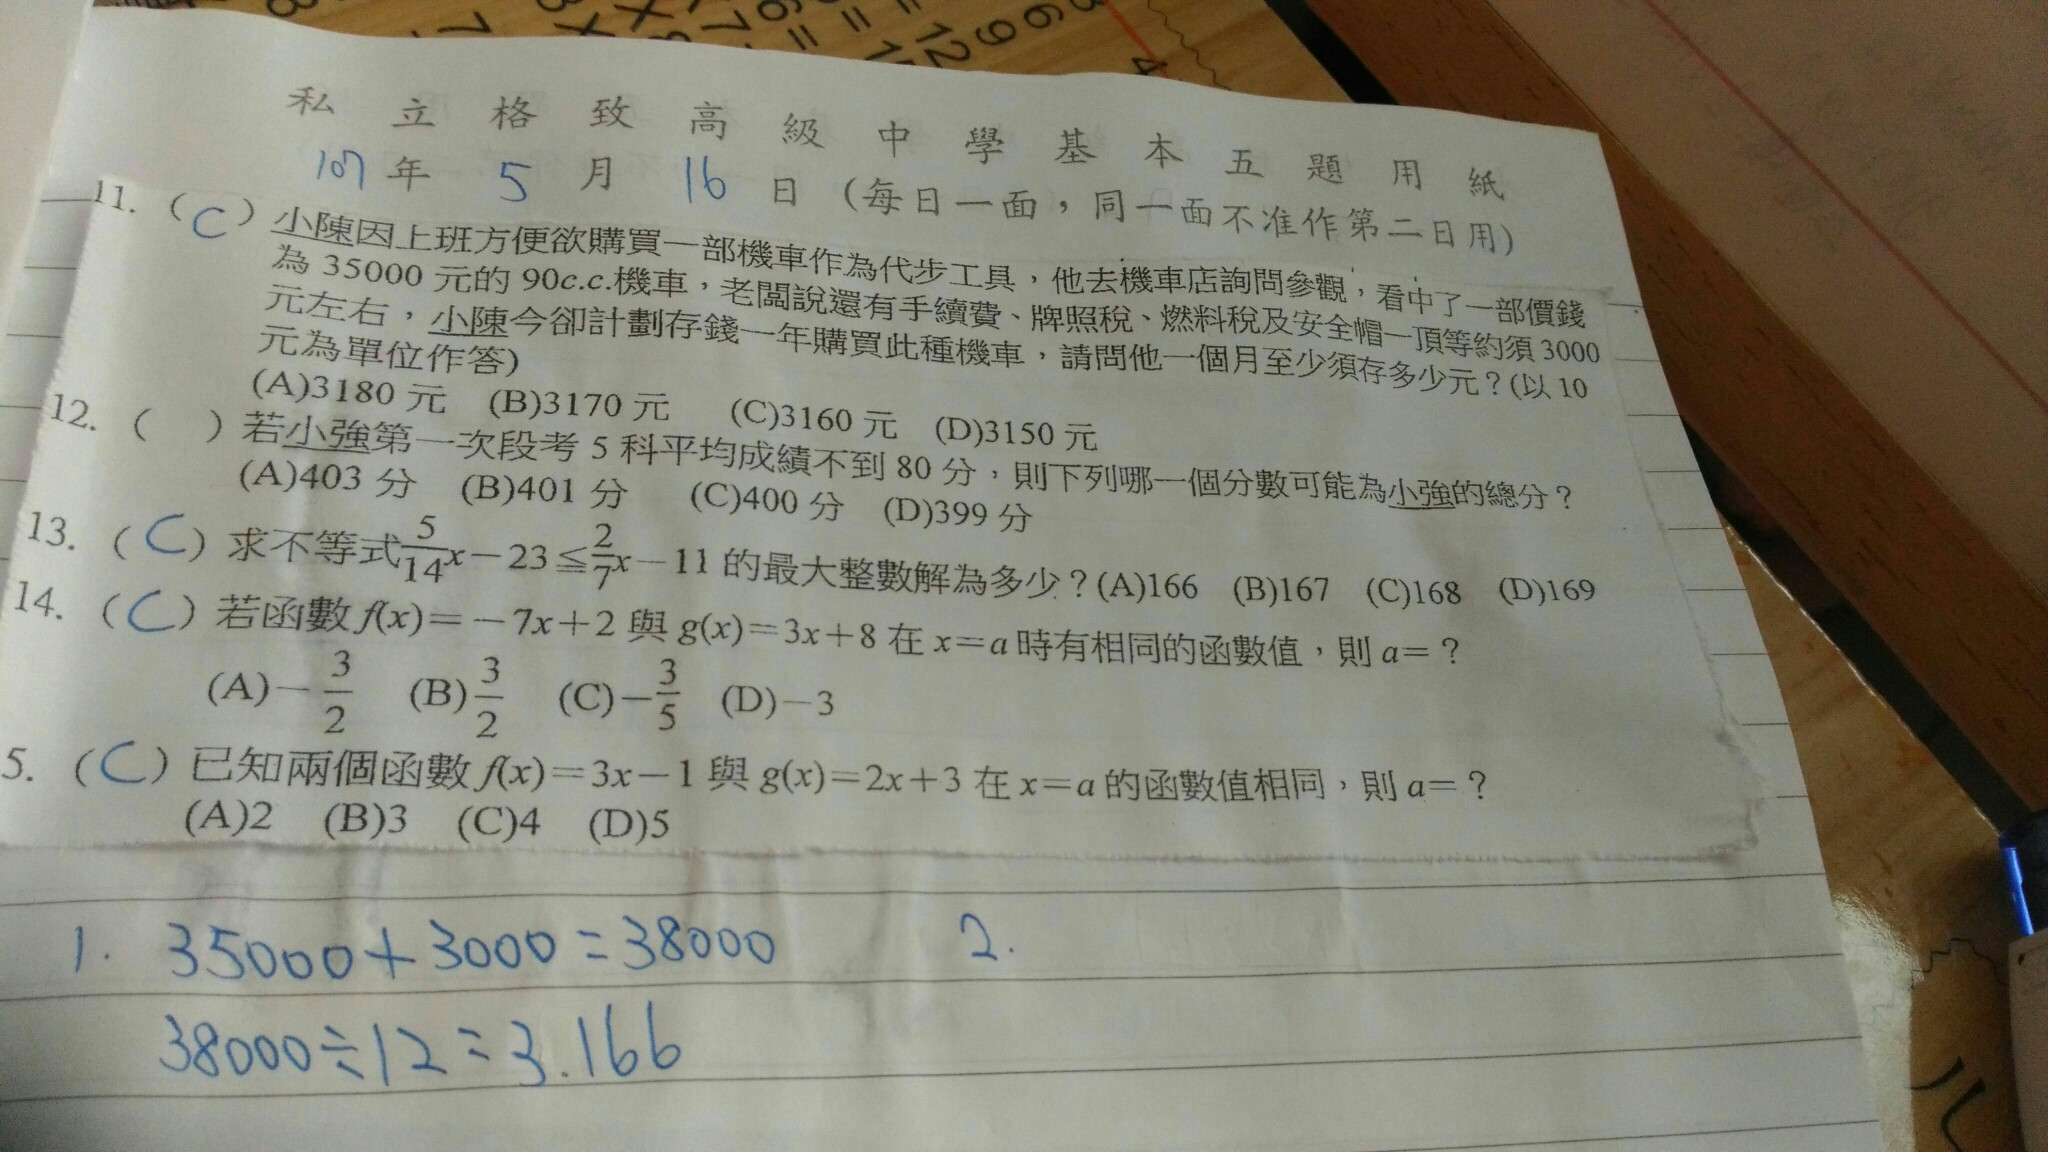 私立格致高級中學基本五題用紙
107年5月16日(每日一面,同一面不准作第二日用)
11. (C)小陳因上班方便欲購買一部機車作為代步工具,他去機車店詢問參觀,看中了一部價錢
為 35000 元的 90c.c.機車,老闆說還有手續費、牌照稅、燃料稅及安全帽一頂等約須 3000
元左右,小陳今卻計劃存錢一年購買此種機車,請問他一個月至少須存多少元?(以 10
元為單位作答)
(A)3180 元 (B)3170 元 (C)3160 元 (D)3150 元
12. ( )若小強第一次段考 5 科平均成績不到 80 分,則下列哪一個分數可能為小強的總分?
(A)403 分 (B)401 分 (C)400 分 (D)399 分
13. (C)求不等式5/14x-23≦2/7x-11 的最大整數解為多少?(A)166 (B)167 (C)168 (D)169
14. (C)若函數 f(x)=-7x+2 與 g(x)=3x+8 在 x=a 時有相同的函數值,則 a=?
(A)-3/2 (B)3/2 (C)-3/5 (D)-3
5. (C)已知兩個函數 f(x)=3x-1 與 g(x)=2x+3 在 x=a 的函數值相同,則 a=?
(A)2 (B)3 (C)4 (D)5
1. 35000+3000=38000 2.
38000÷12=3.166